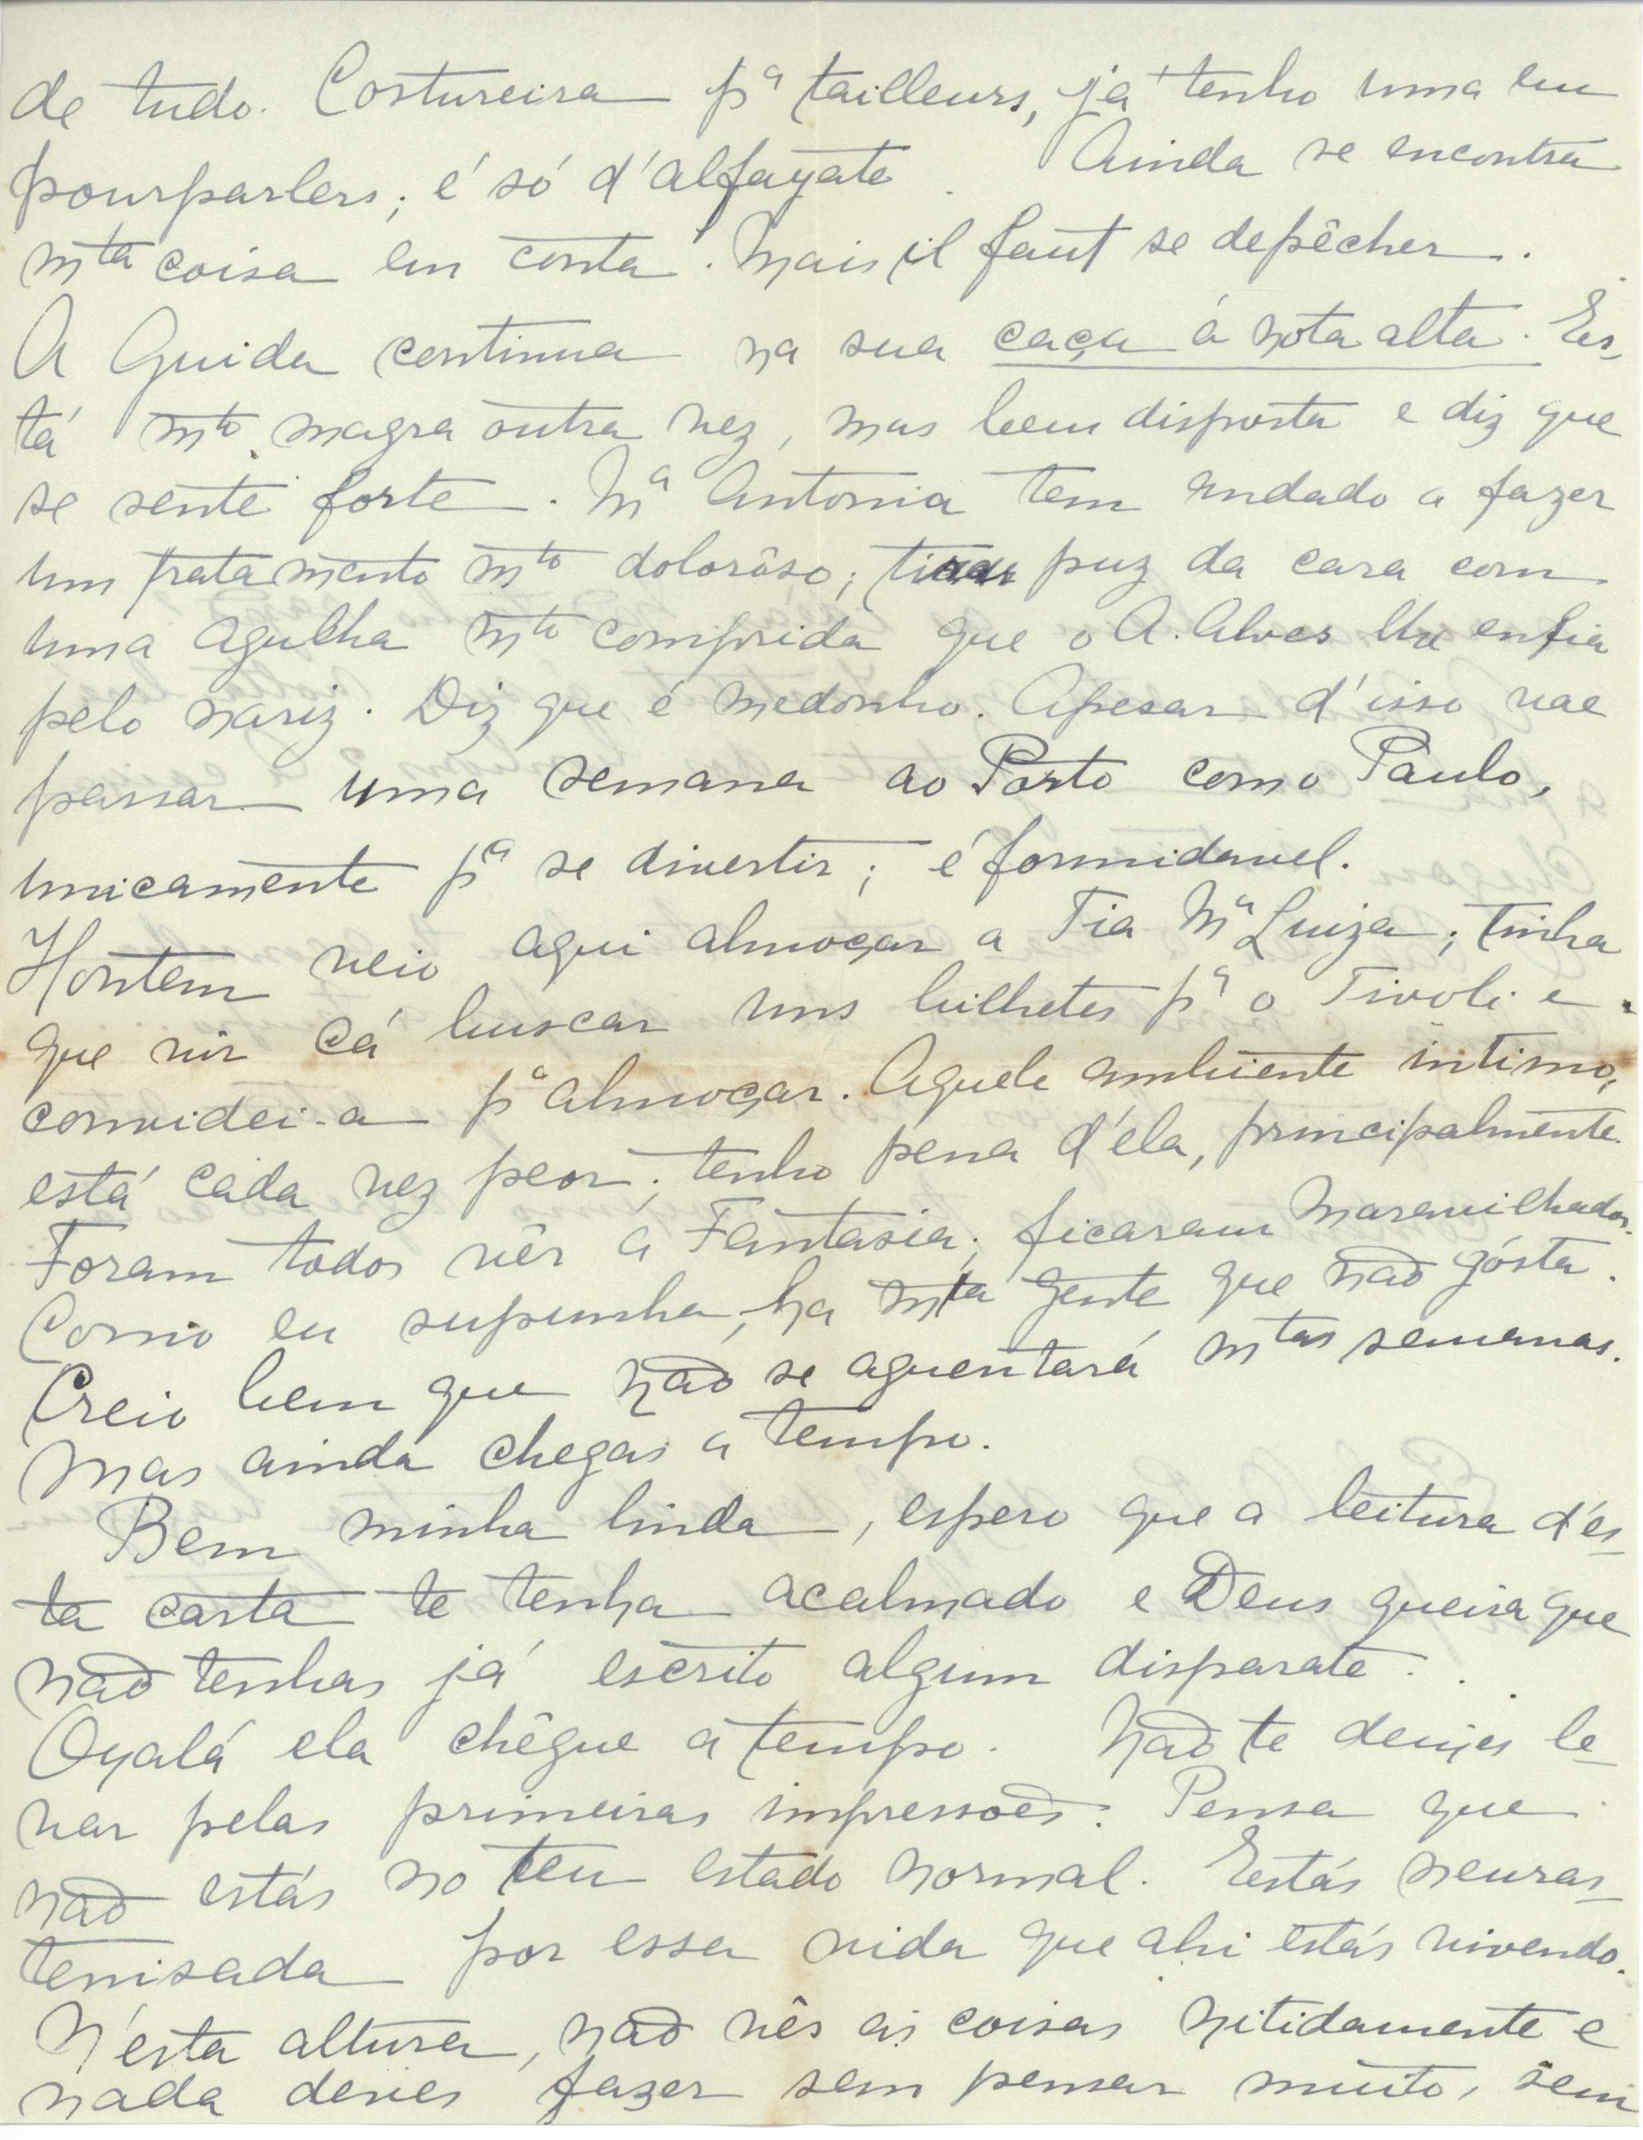 de tudo. Costureira pª tailleurs, já tenho uma em
pourparlers; é só d'alfayate. Ainda se encontra
mta coisa em conta. Mais il faut se depêcher.
A Guida continua na sua caça á nota alta. Es-
tá mto magra outra vez, mas bem disposta e diz que
se sente forte. Mª Antonia tem andado a fazer
um tratamento mto dolorôso; tirar puz da cara com
uma agulha mto comprida que o A. Alves lha enfia
pelo nariz. Diz que é medonho. Apesar d'isso vae
passar uma semana ao Porto como Paulo,
unicamente pª se divertir; é formidavel.
Hontem veio aqui almoçar a Tia Mª Luiza; tinha
que vir cá buscar uns bilhetes pª o Tivoli e
convidei-a pª almoçar. Aquele ambiente intimo,
está cada vez peor; tenho pena d'éla, principalmente.
Foram todos vêr a Fantasia; ficaram maravilhados.
Como eu supunha, ha mta gente que não gósta.
Creio bem que não se aguentará mtas semanas.
Mas ainda chegas a tempo.
Bem minha linda, espero que a leitura d'és-
ta carta te tenha acalmado e Deus queira que
não tenhas já escrito algum disparate...
Oyalá ela chêgue a tempo. Não te deixes le-
var pelas primeiras impressoês. Pensa que
não estás no teu estado normal. Estás neuras-
tenisada por essa vida que ahi estás vivendo.
N'esta altura, não vês as coisas nitidamente e
nada deves fazer sem pensar muito, sem